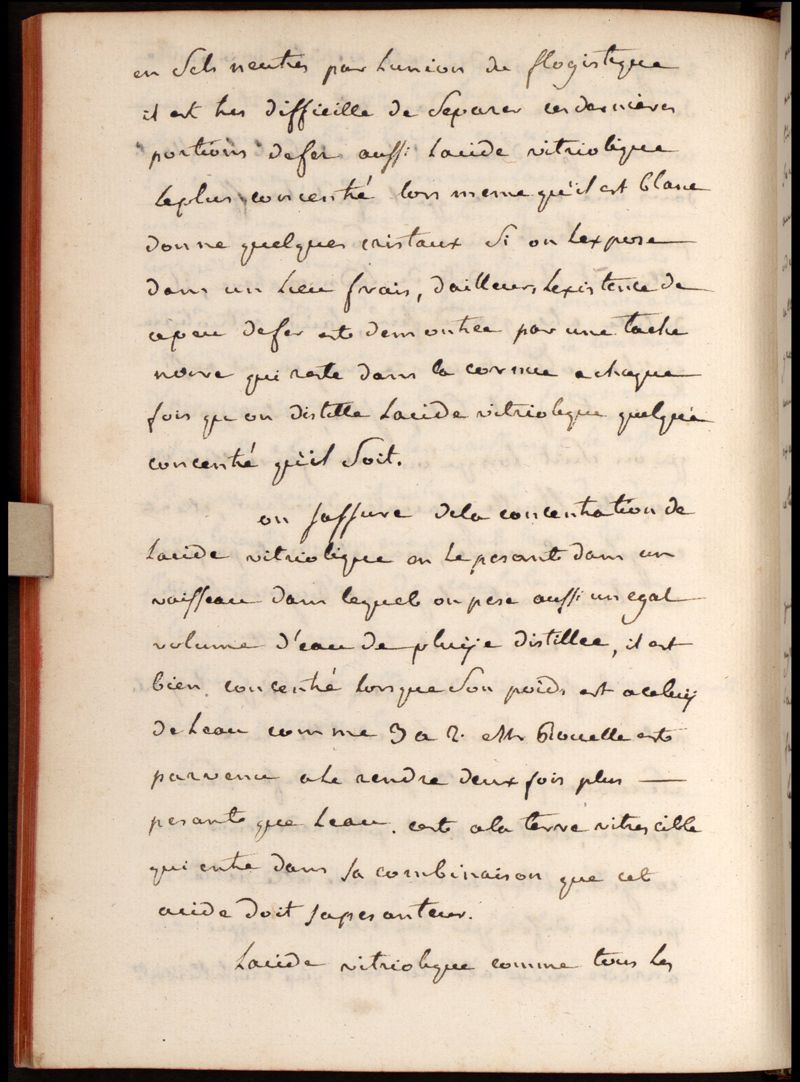 en Sels neutres par Lunion du flogistique
il est tres difficille de Separer ces dernieres
portions defer aussi Lacide vitriolique
Leplus concentré lors meme qu'il est blanc
donne quelques cristaux Si on Lexpose
dans un Lieu frais, dailleurs Lexistence de
cepeu defer est demontrée par une tache
noire qui reste dans la cornue a chaque
fois qu on distille Lacide vitriolique quelque
concentré qu'il Soit.
on sassure dela concentration de
Lacide vitriolique en Le pesant dans un
vaisseau dans lequel on pese aussi un egal
volume d'eau de pluye distillée, il est
bien concentré lorsque Son poids est a celuy
de Leau comme 3 a 2. et Mr Rouelle est
parvenu a Le rendre deux fois plus —
pesant que Leau. cest a la terre vitrescible
qui entre dans sa combinaison que cet
acide doit sapesanteur.
Lacide vitriolique comme tous les